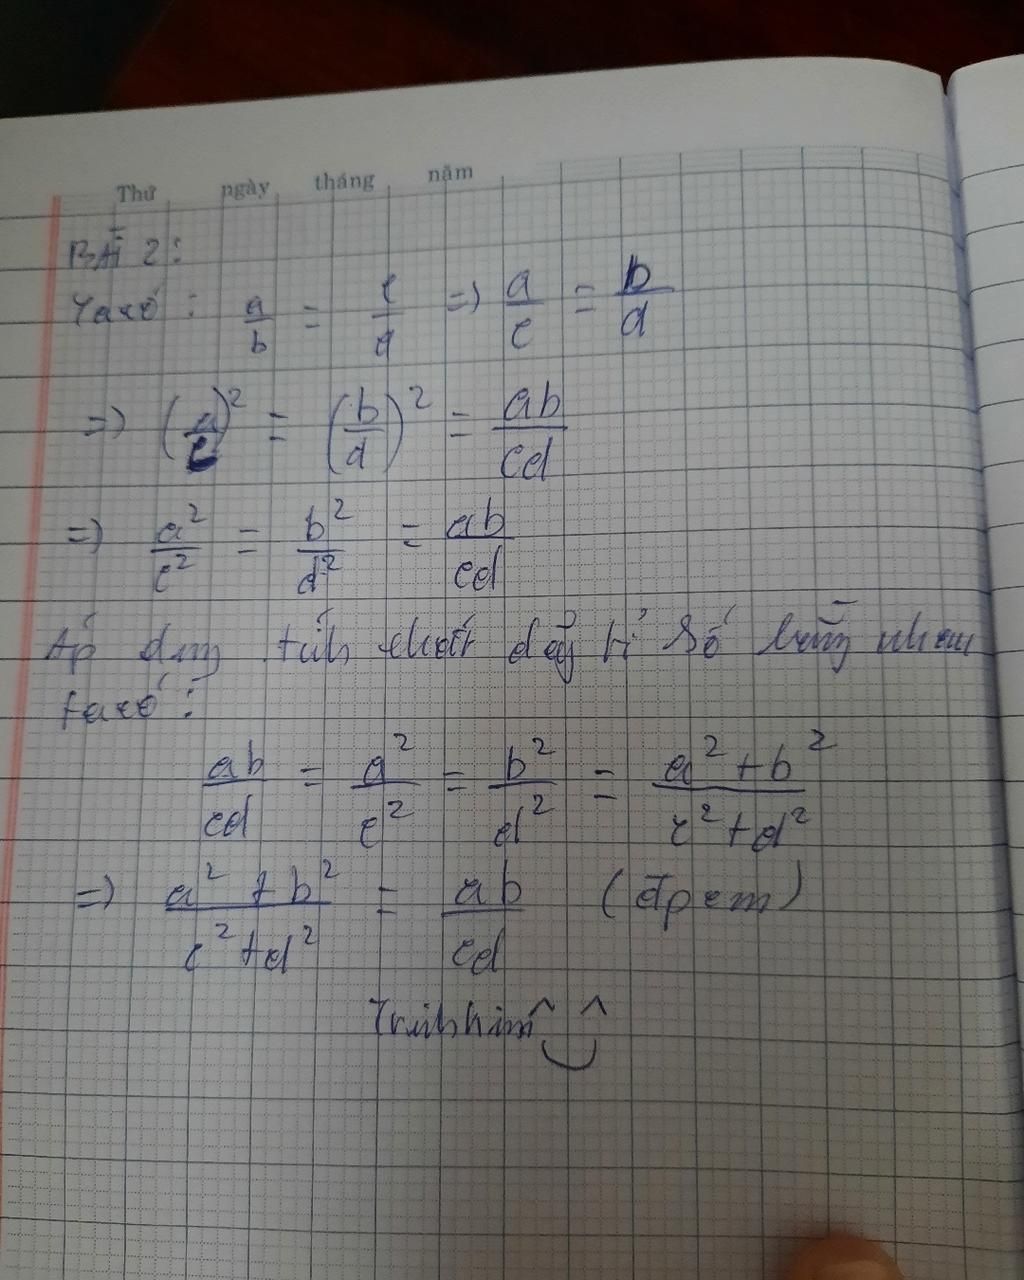 Thứ ngày tháng năm
BÀI 2:
Ta có: a/b = c/d => a/c = b/d
=> (a/c)² = (b/d)² = ab/cd
=> a²/c² = b²/d² = ab/cd
Áp dụng tính chất dãy tỉ số bằng nhau
ta có:
ab/cd = a²/c² = b²/d² = a²+b²/c²+d²
=> a²+b²/c²+d² = ab/cd (đpcm)